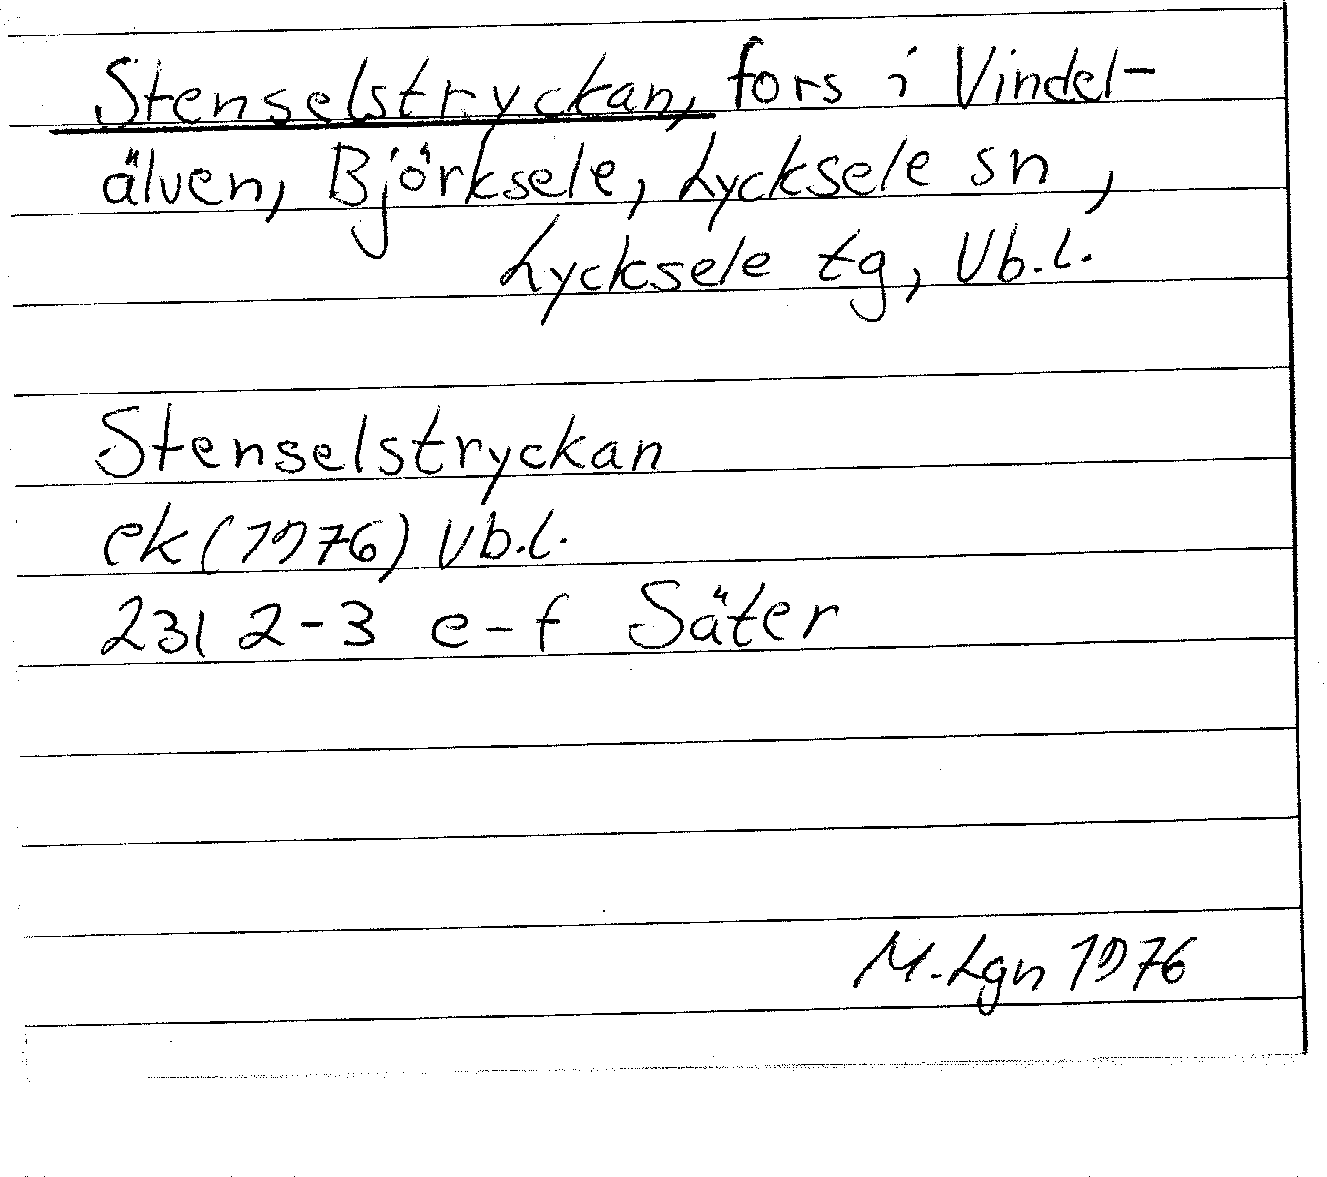 Stenselstryckan, fors i Vindel-
älven, Björksele, Lycksele sn,
Lycksele tg, Vb.l.
Stenselstryckan
ek (1976) Vb.l.
23I 2-3 e-f Säter
M.Lgn 1976